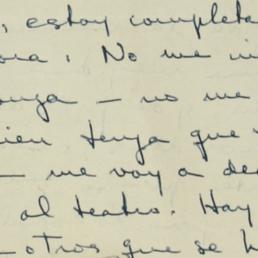 , estoy completa
ora. No me in
onga — no me
ien tenga que
— me voy a de
al teatro. Hay
— otros que se h